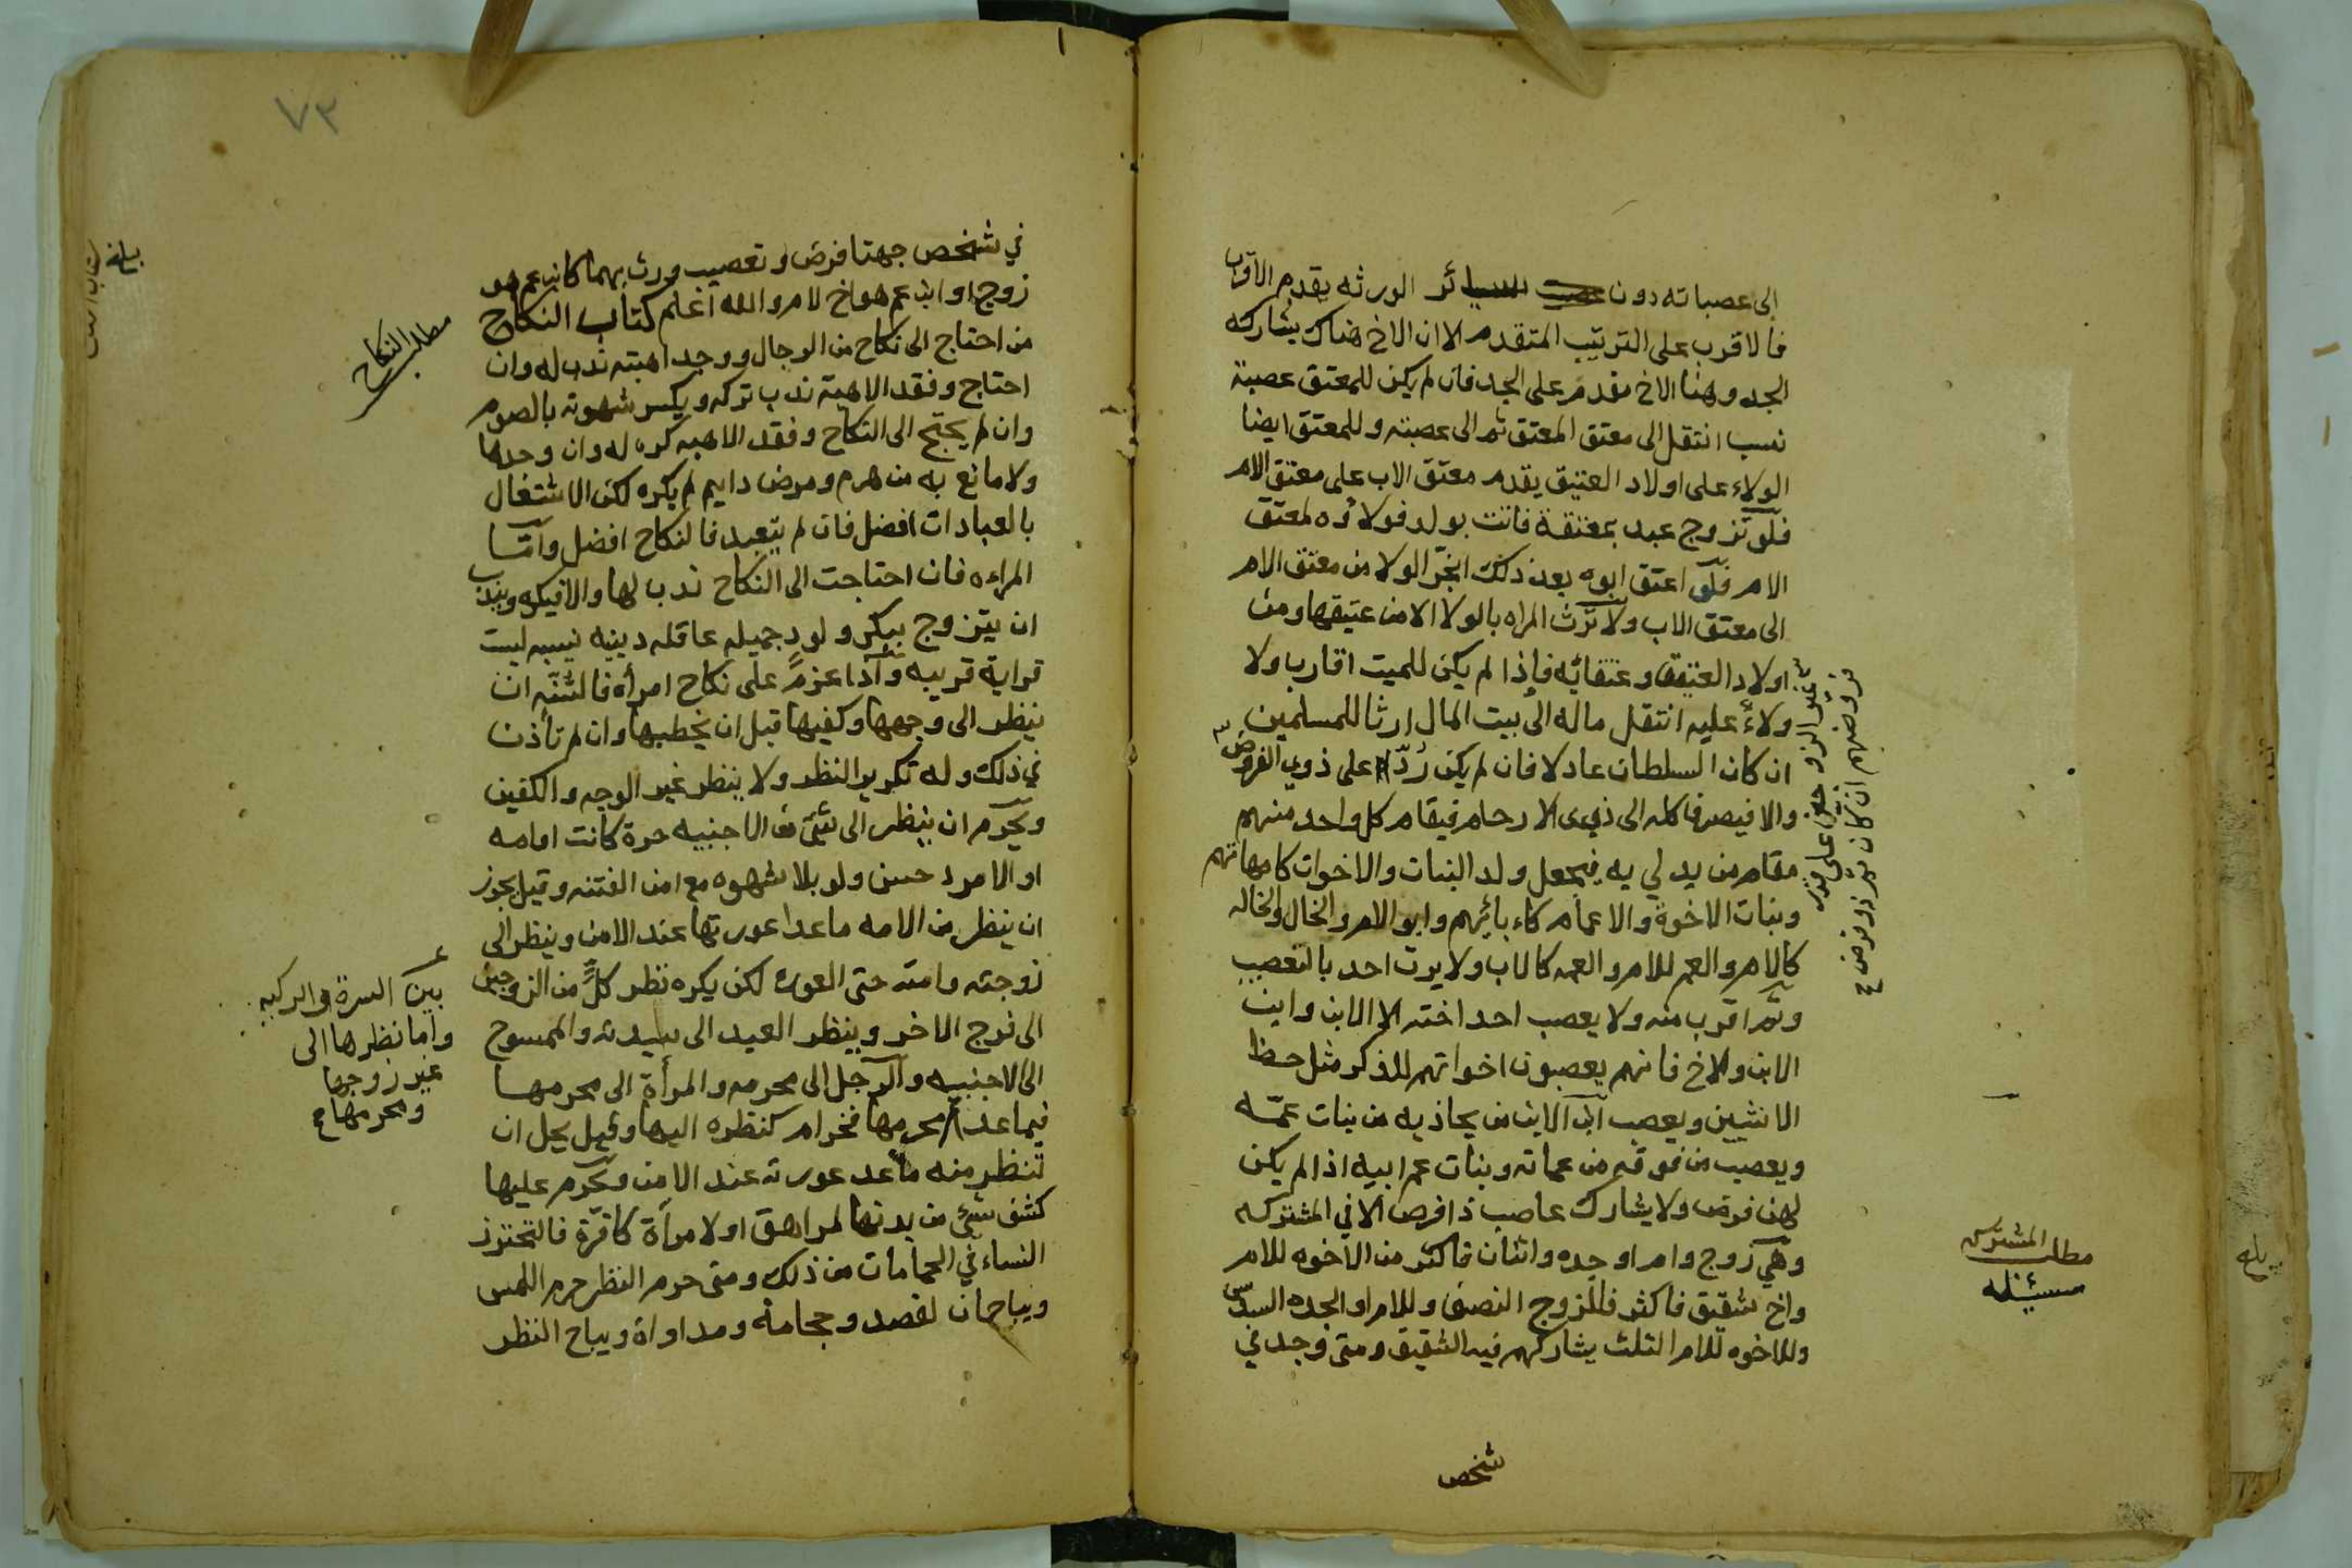 الى عصباته دون سائر الورثه يقدم الاقرب
فالاقرب على الترتيب المتقدم الا ان الاخ هناك يشارك
الجد وهنا الاخ مقدم على الجد فان لم يكن للمعتق عصبة
نسب انتقل الى معتق المعتق ثم الى عصبته وللمعتق ايضا
الولاء على اولاد العتيق يقدم معتق الاب على معتق الام
فلو تزوج عبد بمعتقة فاتت بولد فولاؤه لمعتق
الام فلو اعتق ابوه بعد ذلك انجرّ الولا من معتق الام
الى معتق الاب ولا ترث المراه بالولا الا من عتيقها ومن
اولاد العتيق وعتقائه فإذا لم يكن للميت اقارب ولا
ولاءٌ عليه انتقل ماله الى بيت المال ارثا للمسلمين
ان كان السلطان عادلا فان لم يكن رُدّ على ذوي الفروض
غير الزوجين على قدر
فروضهم ان كان ثم ذو فرض
والا فيصرفا كله الى ذوي الارحام فيقام كل واحد منهم
مقام من يدلي به فيجعل ولد البنات والاخوات كامهاتهم
وبنات الاخوة والاعمام كاءبائهم وابو الام والخال والخاله
كالام والعم للام والعمه كالاب ولا يرث احد بالتعصيب
وثم اقرب منه ولا يعصب احد اخته الا الابن وابن
الابن والاخ فانهم يعصبون اخواتهم للذكر مثل حظ
الانثيين ويعصب ابن الابن من يحاذيه من بنات عمّه
ويعصب من فوقه من عماته وبنات عم ابيه اذا لم يكن
لهن فرض ولا يشارك عاصب ذا فرض الا في المشتركه
وهي زوج وام او جده واثنان فاكثر من الاخوه للام
واخ شقيق فاكثر فللزوج النصف وللام او الجده السدس
وللاخوه للام الثلث يشاركهم فيه الشقيق ومتى وجد في
مطلب المشتركه
مسئله
شخص
٧٣
في شخص جهتا فرض وتعصيب ورث بهما كابن عم هو
زوج او ابن عم هو اخ لام والله اعلم كتاب النكاح
مطلب النكاح
من احتاج الى نكاح من الرجال ووجد اهبته ندب له وان
احتاج وفقد الاهبة ندب تركه ويكسر شهوته بالصوم
وان لم يحتج الى النكاح وفقد الاهبه كره له وان وجدها
ولا مانع به من هرم ومرض دايم لم يكره لكن الاشتغال
بالعبادات افضل فان لم يتعبد فالنكاح افضل وامّا
المراءه فان احتاجت الى النكاح ندب لها والا فيكره ويندب
ان يتزوج ببكر ولود جميله عاقله دينيه نسيبه ليست
قرابة قريبه واذا عزم على نكاح امرأه فالسّنّه ان
ينظر الى وجهها وكفيها قبل ان يخطبها وان لم تأذن
في ذلك وله تكرير النظر ولا ينظر غير الوجه والكفين
ويحرم ان ينظر الى شئ من الاجنبيه حرة كانت او امه
او الامرد حسن ولو بلا شهوه مع امن الفتنه وقيل يجوز
ان ينظر من الامه ما عدا عورتها عند الامن وينظر الى
زوجته وامته حتى العوره لكن يكره نظر كلٍّ من الزوجين
الى فرج الاخر وينظر العبد الى سيدته والممسوح
الى الاجنبيه والرجل الى محرمه والمرأة الى محرمها
فيما عدا
بين السرة والركبه
واما نظرها الى
غير زوجها
ومحرمها
محرمها فحرام كنظره اليها وقيل يحل ان
تنظر منه ما عد عورته عند الامن ويحرم عليها
كشف شئ من بدنها لمراهق او لامرأة كافرة فالتحترز
النساء في الحمامات من ذلك ومتى حرم النظر حرم اللمس
ويباحان لفصد وحجامة ومداواة ويباح النظر